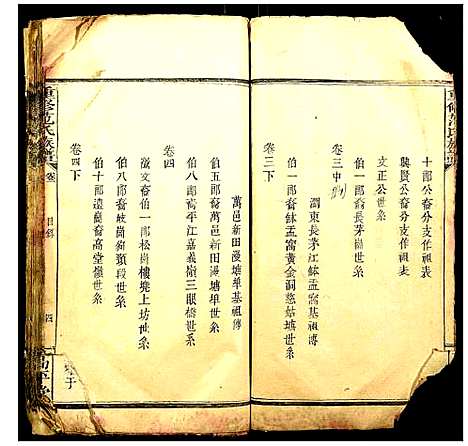 重修范氏族譜
十郎公裔分支作祖表
驥賢公裔分支作祖表
文正公世系
卷三中
伯一郎裔長茅崗世系
瀏東長茅江缽盂窩基祖傳
伯一郎裔缽盂窩黃金洞慈姑塘世系
卷三下
萬邑新田漫塘單基祖傳
伯五郎裔萬邑新田漫塘單世系
伯八郎裔平江嘉義嶺三眼橋世系
卷四
啟文裔伯一郎松崗樓凳上坊世系
伯十郎裔破崗狗頸段世系
伯十郎遠蘭裔高堂嶺世系
卷四下
重修范氏族譜
卷
目錄
四